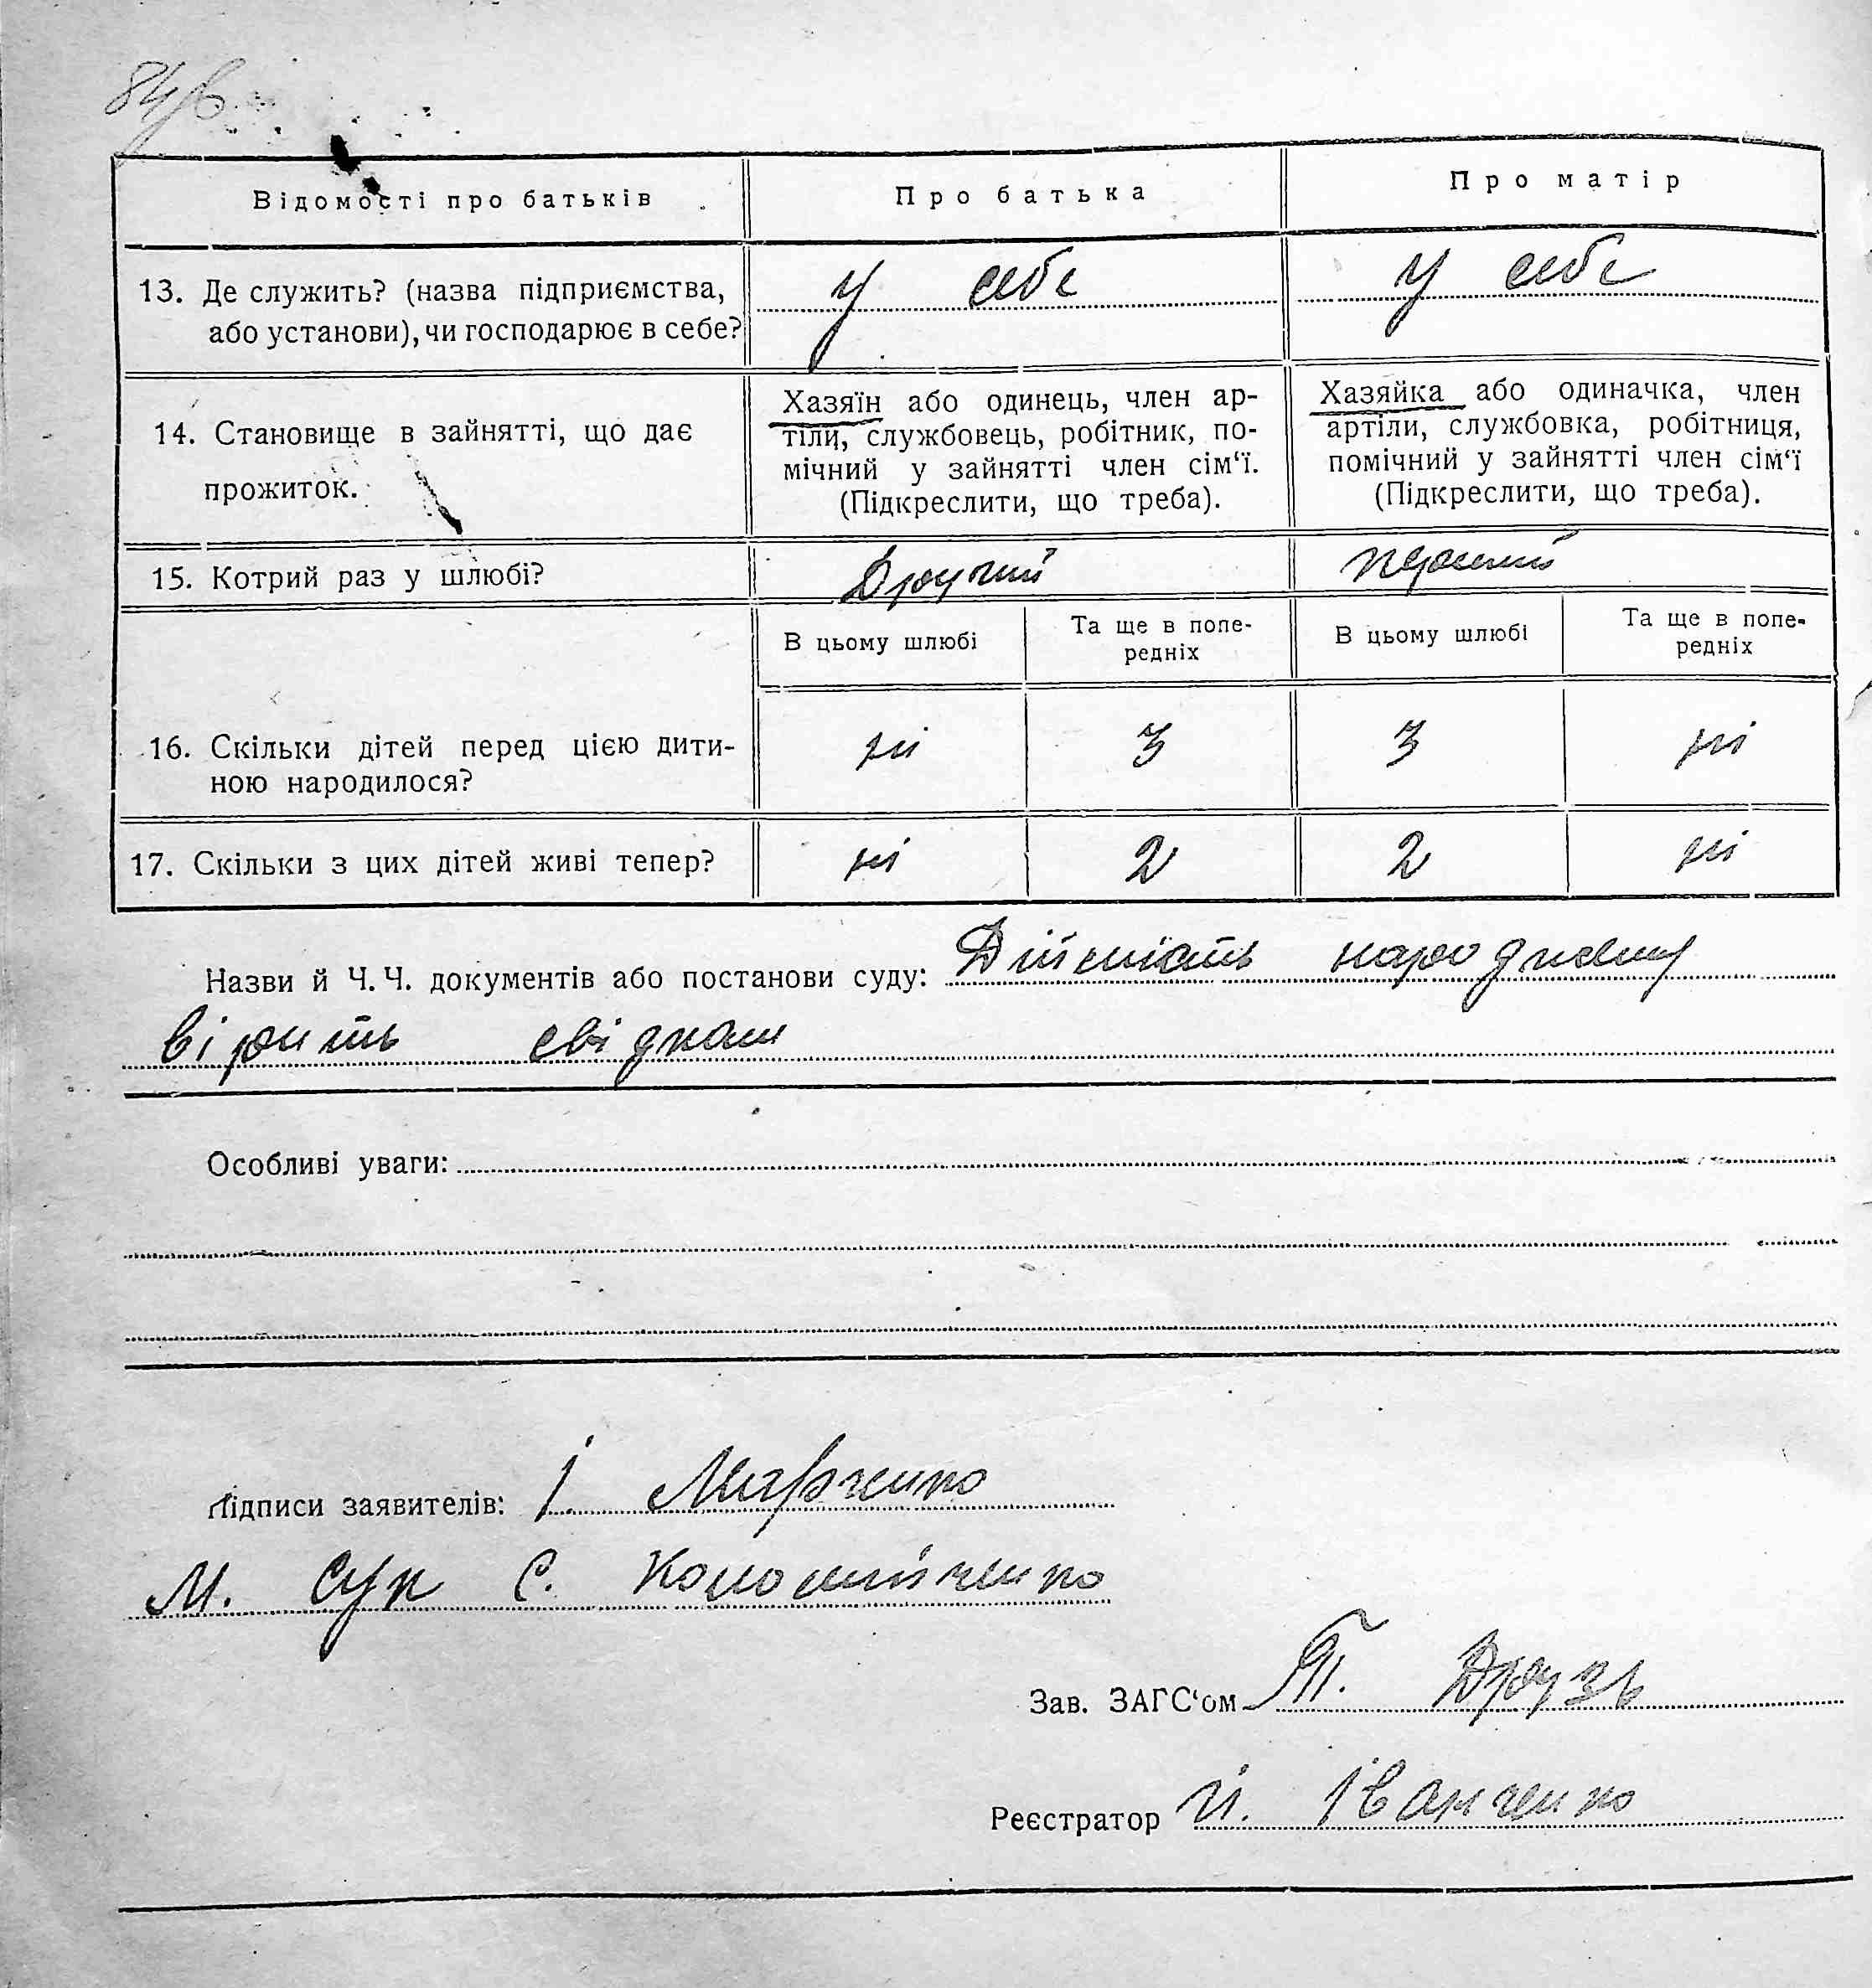 84/6
Відомості про батьків
Про батька
Про матір
13. Де служить? (назва підприємства,
або установи), чи господарює в себе?
у себе
у себе
14. Становище в зайнятті, що дає
прожиток.
Хазяїн або одинець, член ар-
тіли, службовець, робітник, по-
мічний у зайнятті член сім‘ї.
(Підкреслити, що треба).
Хазяйка або одиначка, член
артіли, службовка, робітниця,
помічний у зайнятті член сім‘ї
(Підкреслити, що треба).
15. Котрий раз у шлюбі?
Другий
перший
В цьому шлюбі
Та ще в попе-
редніх
В цьому шлюбі
Та ще в попе-
редніх
16. Скільки дітей перед цією дити-
ною народилося?
ні
3
3
ні
17. Скільки з цих дітей живі тепер?
ні
2
2
ні
Назви й Ч. Ч. документів або постанови суду: Дійсність
вірить свідкам
Особливі уваги:
Підписи заявителів: І. Марченко
М. Сук С. Коломійченко
Зав. ЗАГС‘ом Т. Друзь
Реєстратор Й. Іванченко